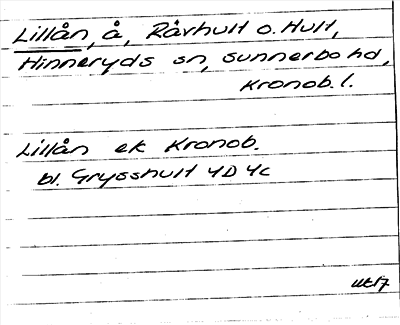 Lillån, å, Råvhult o. Hult,
Hinneryds sn, Sunnerbo hd,
Kronob. l.
Lillån ek Kronob.
bl. Grysshult 4D 4c